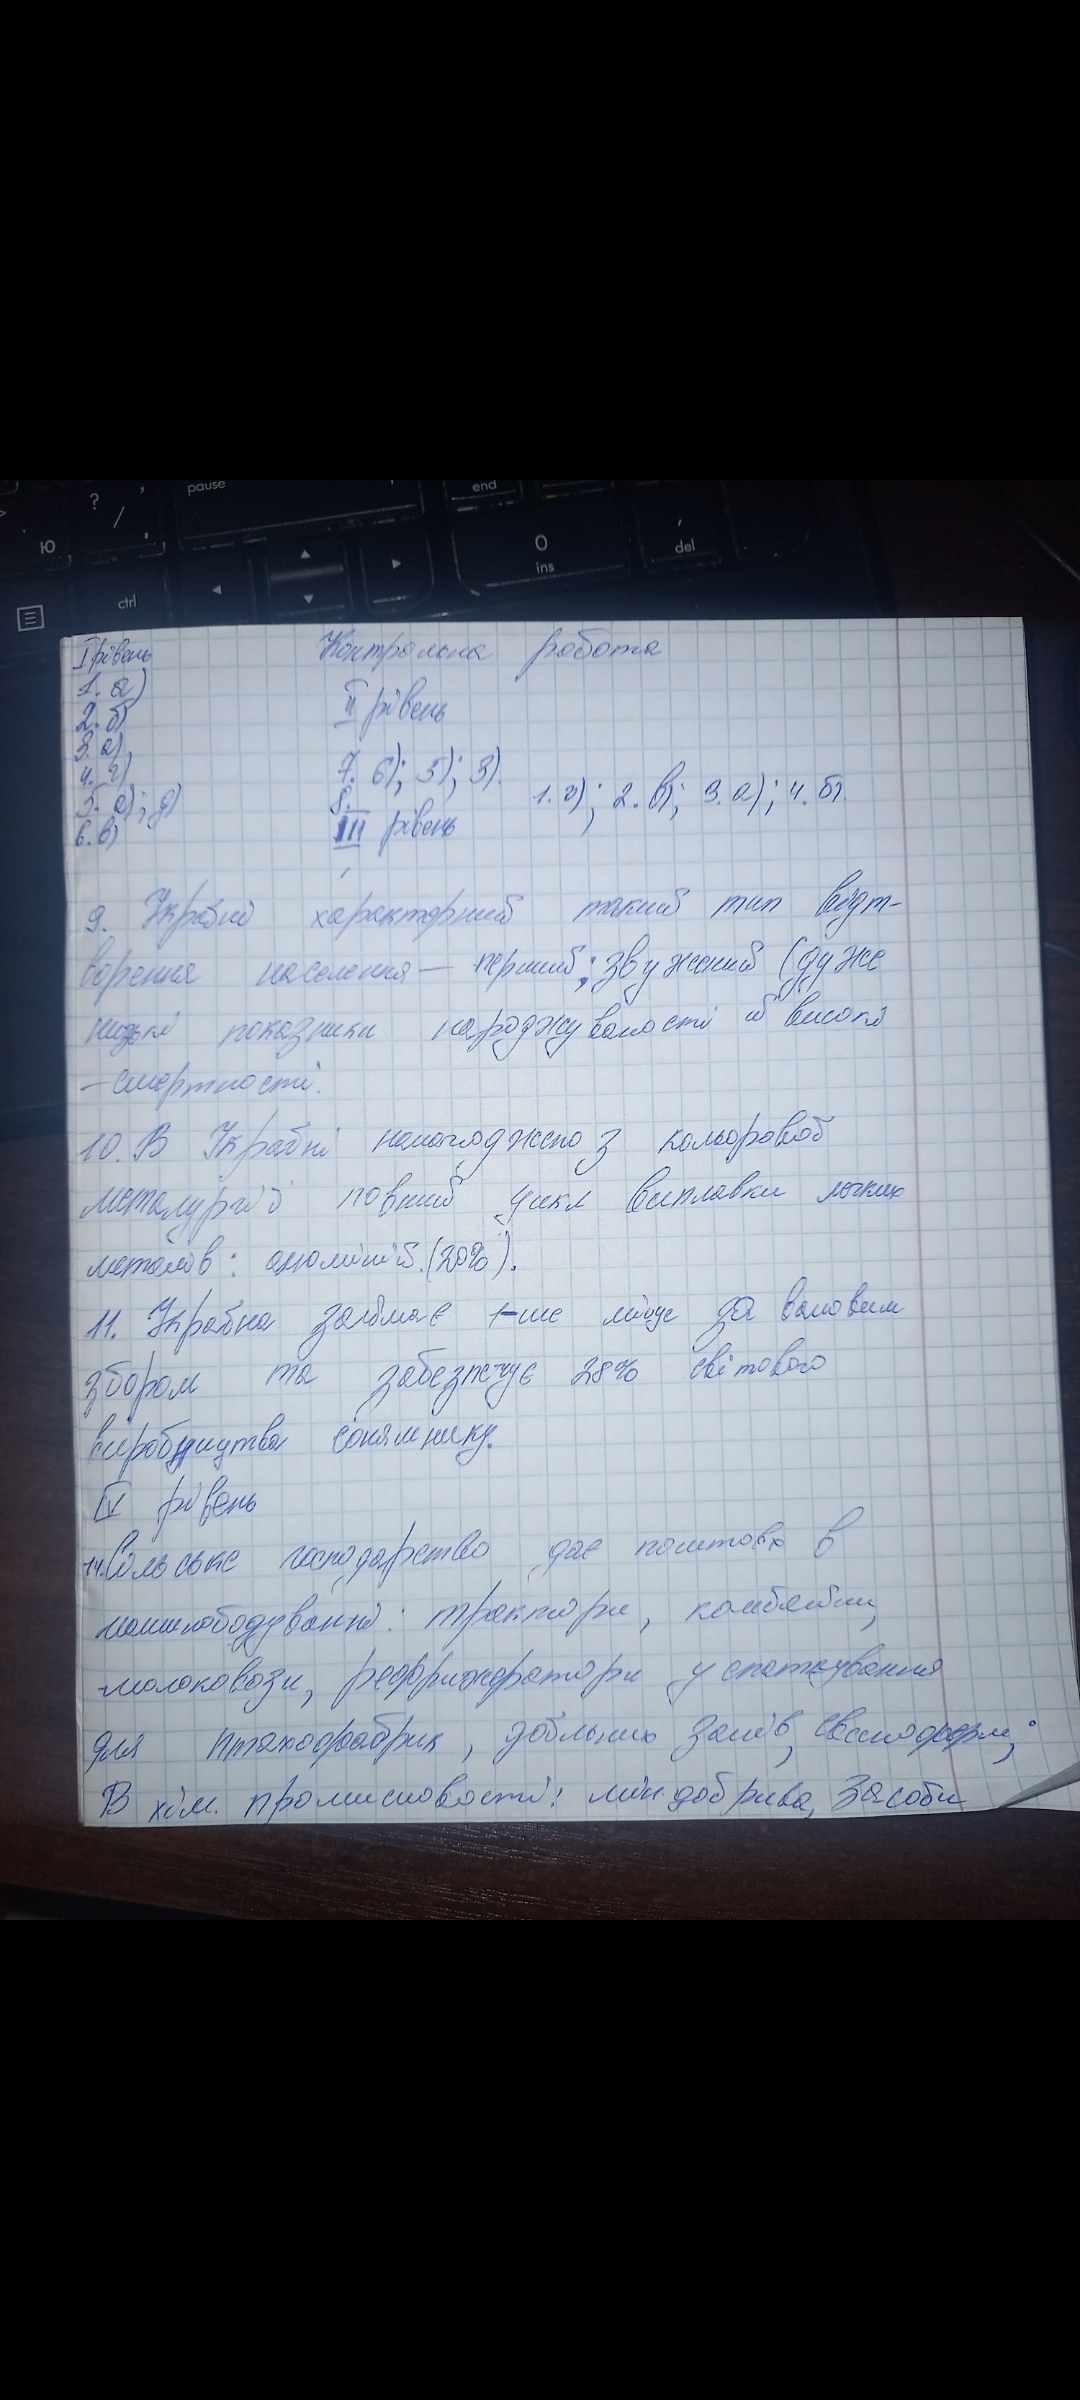 pause
end
?
/
Ю
0
ins
del
ctrl
Контрольна робота
I рівень
1. а)
2. б)
3. а)
4. г)
5. а); д)
6. в)
II рівень
7. 6); 5); 3).
8. 1. г); 2. в); 3. а); 4. б).
III рівень
9. Україні характерний такий тип відт-
ворення населення — перший; звужений (дуже
низькі показники народжуваності й високі
— смертності.
10. В Україні налагоджено з кольоровой
металургії повний цикл виплавки легких
металів: алюміній. (20%).
11. Україна займає 1-ше місце за валовим
збором та забезпечує 28% світового
виробництва соняшнику.
IV рівень
14. Сільське господарство дає поштовх в
машинобудуванні: трактори, комбайни,
молоковози, рефрижератори устаткування
для птахофабрик, доїльних залів, свиноферм;
В хім. промисловості: мін. добрива, засоби